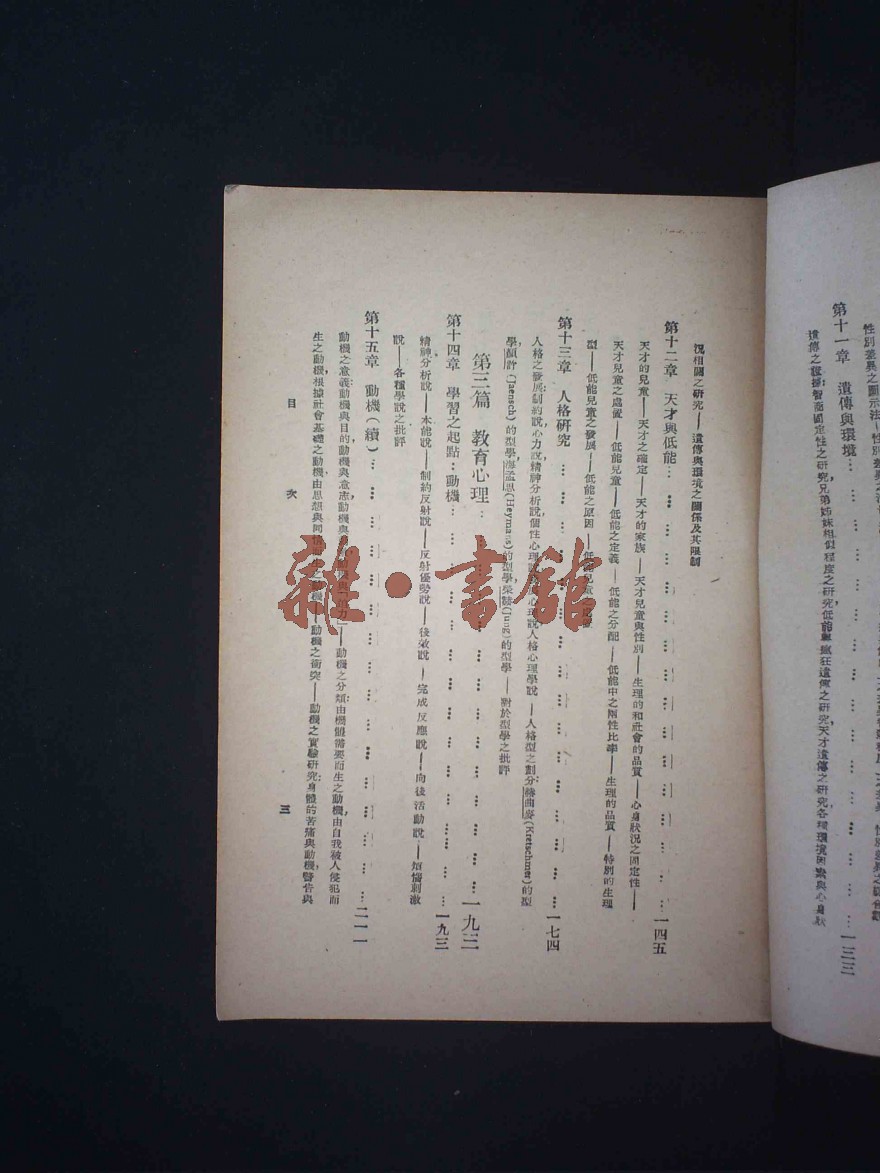 性別差異之圖示法—性別差異之
第十一章　遺傳與環境…………一三三
遺傳之證據:智商固定性之研究,兄弟姊妹相似程度之研究,低能與瘋狂遺傳之研究,天才遺傳之研究,各種環境因素與心身狀
況相關之研究——遺傳與環境之關係及其限制
第十二章　天才與低能…………一四五
天才的兒童——天才之確定——天才的家族——天才兒童與性別——生理的和社會的品質——心身狀況之固定性——
天才兒童之處置——低能兒童——低能之定義——低能之分配——低能中之兩性比率——生理的品質——特別的生理
型——低能兒童之發展——低能之原因——低能兒童之
第十三章　人格研究…………一七四
人格之發展:制約說,心力說,精神分析說,個性心理說,人格心理學說——人格型之劃分:蔣曲麥(Kretschmer)的型
學,顏許(Jaensch)的型學,海孟思(Heymans)的型學,榮格(Jung)的型學——對於型學之批評
第三篇　教育心理…………一九三
第十四章　學習之起點:動機…………一九三
精神分析說——本能說——制約反射說——反射優勢說——後效說——完成反應說——向後活動說——煩惱刺激
說——各種學說之批評
第十五章　動機(續)…………二一一
動機之意義:動機與目的,動機與意志,動機與力」——動機之分類:由機體需要而生之動機,由自我被人侵犯而
生之動機,根據社會基礎之動機,由思想與同情而生之動機——動機之衝突——動機之實驗研究:身體的苦痛與動機,警告與
目　次　三
雜·書館